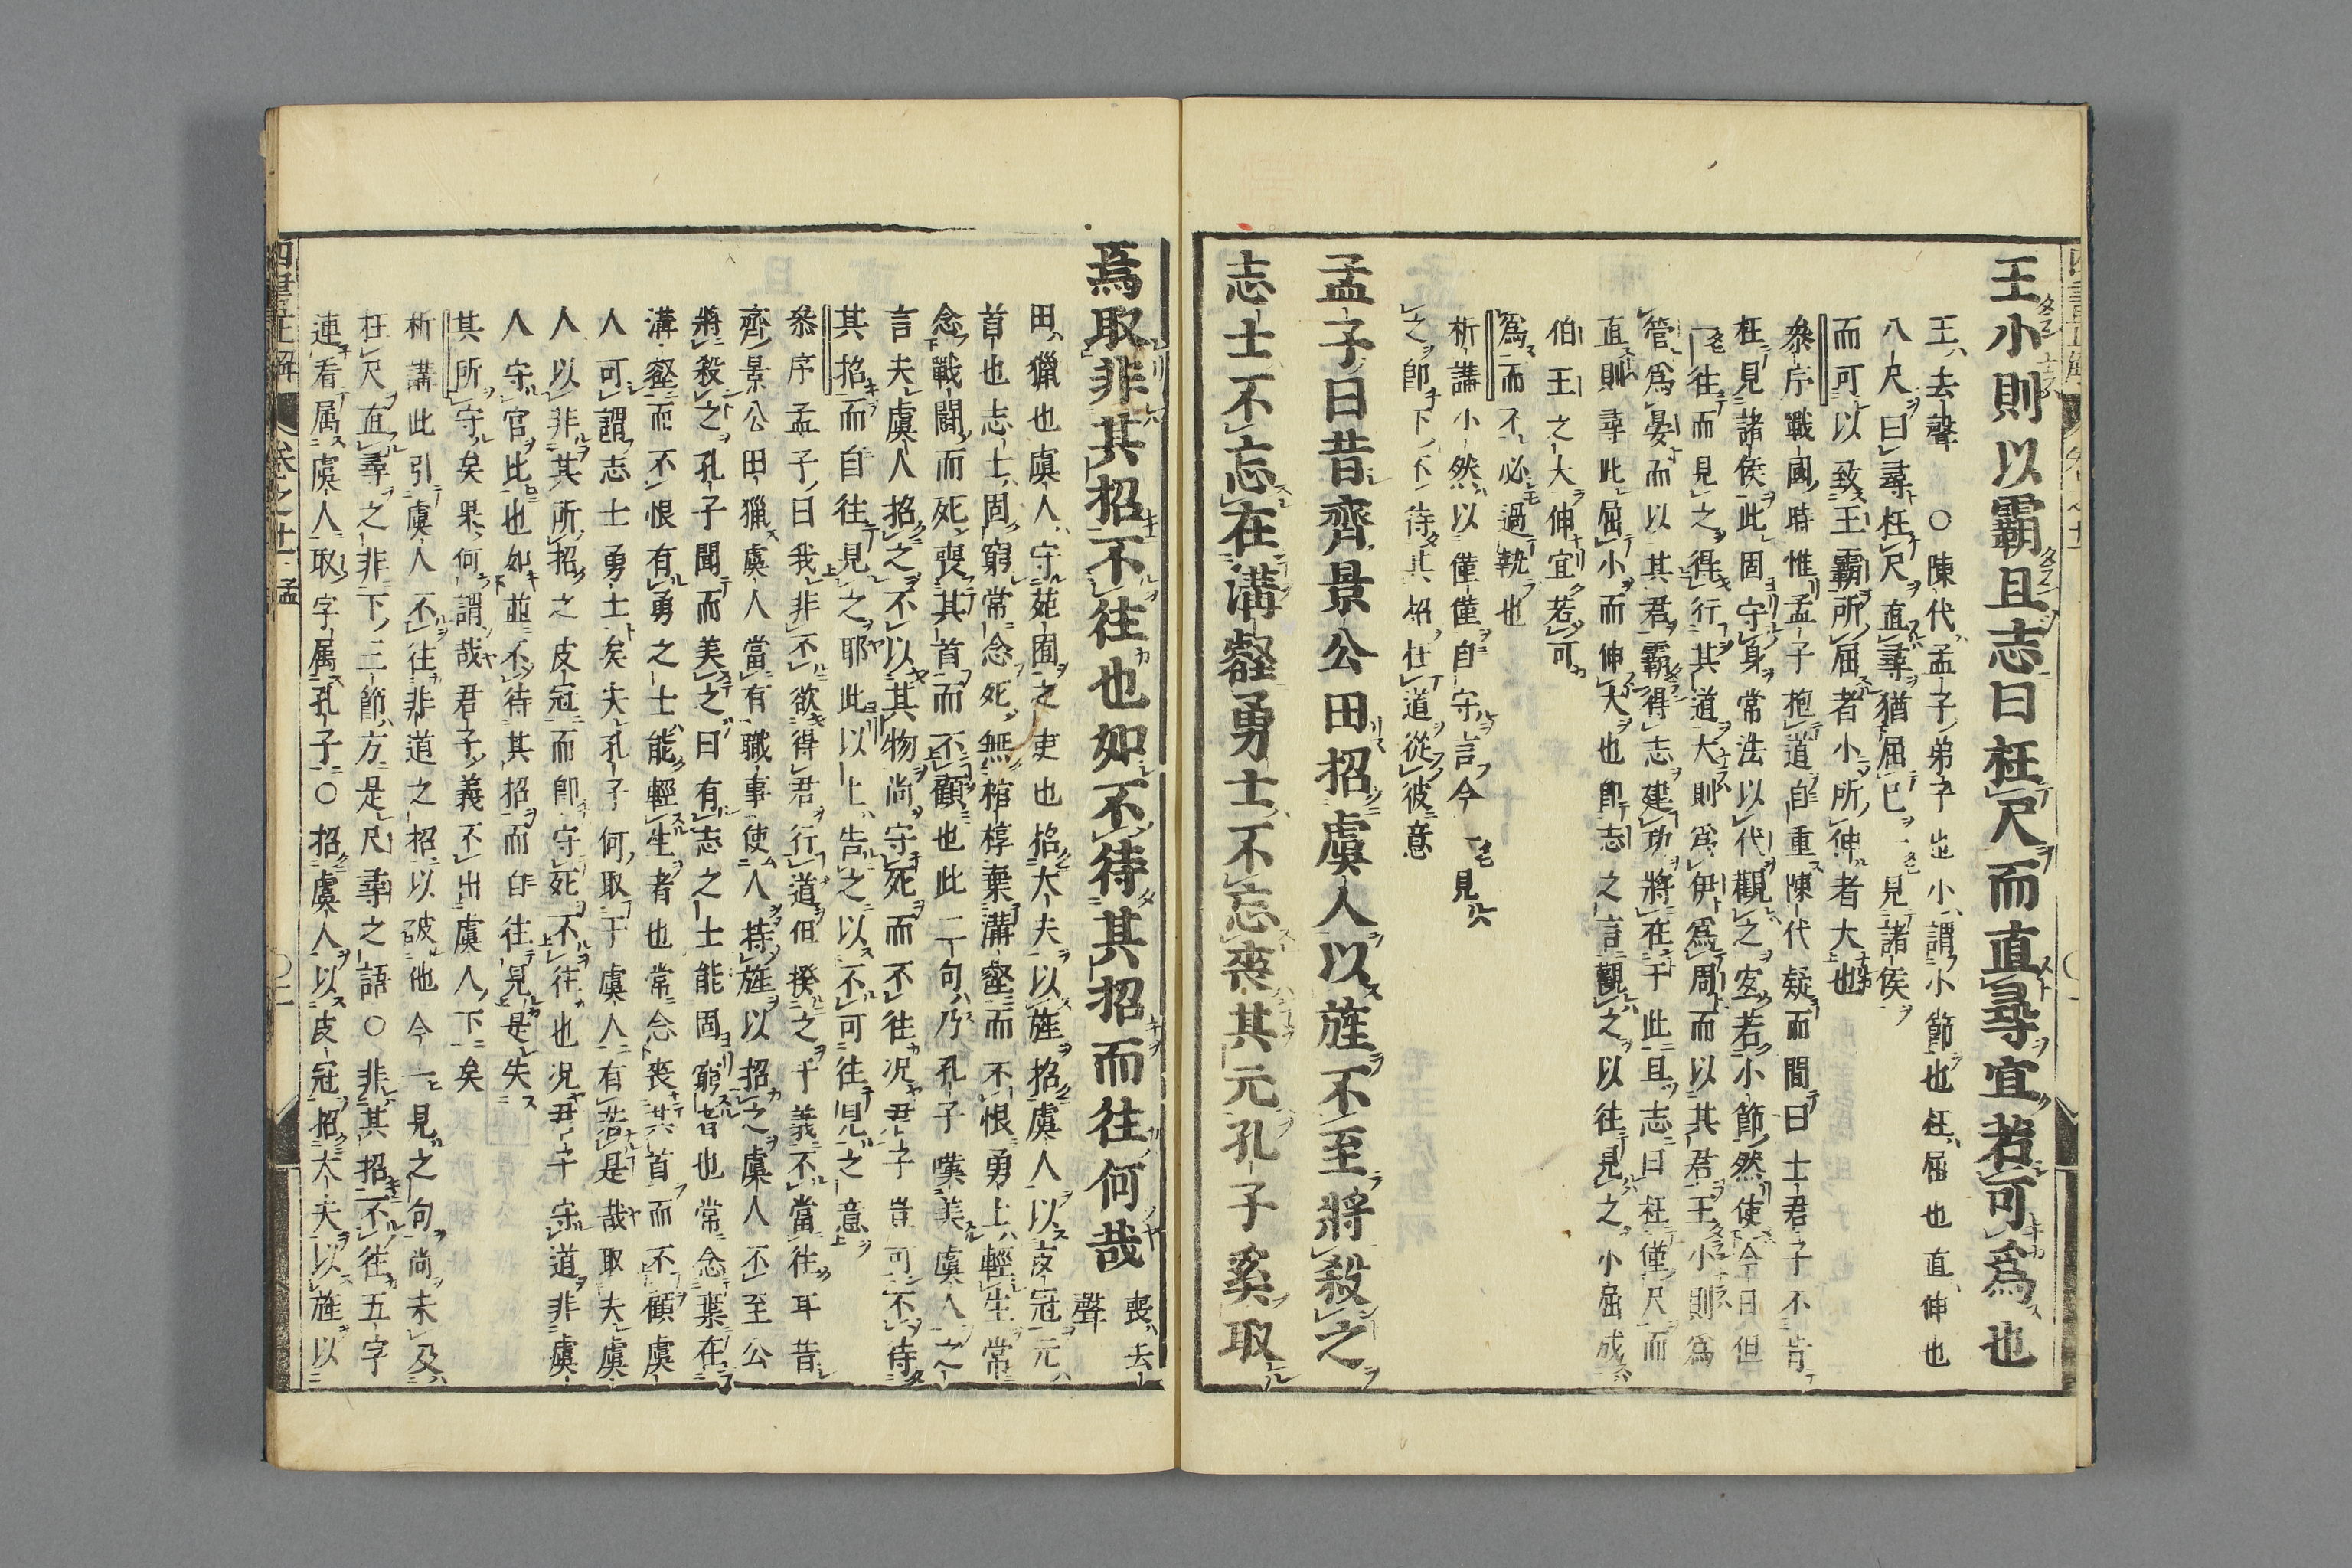 王小則以霸且志曰枉尺而直尋宜若可爲也
王去聲○陳代孟子弟子也小謂小節也枉屈也直伸也
八尺曰尋枉尺直尋猶屈己一見諸侯
而可以致王霸所屈者小所伸者大也
叅序戰國時惟孟子抱道自重陳代疑而問曰士君子不肯
枉見諸侯此固守身常法以代觀之宜若小節然使今日但
一往而見之得行其道大則爲伊爲周而以其君王小則爲
管爲晏而以其君霸得志建功將在于此且志曰枉僅尺而
直則尋此屈小而伸大也卽志之言觀之以往見之小屈成
伯王之大伸宜若可
爲而不必過執也
析講小然以僅僅自守言今一見
之卽下不待其招枉道從彼意
孟子曰昔齊景公田招虞人以旌不至將殺之
志士不忘在溝壑勇士不忘喪其元孔子奚取
焉取非其招不往也如不待其招而往何哉
喪去聲
田獵也虞人守苑囿之吏也招大夫以旌招虞人以皮冠元
首也志士固窮常念死無棺椁棄溝壑而不恨勇士輕生常
念戰鬪而死喪其首而不顧也此二句乃孔子嘆美虞人之
言夫虞人招之不以其物尚守死而不往况君子豈可不待
其招而自往見之耶此以上告之以不可往見之意
叅序孟子曰我非不欲得君行道但揆之于義不當往耳昔
齊景公田獵虞人當有職事使人持旌以招之虞人不至公
將殺之孔子聞而美之曰有志之士能固窮者也常念棄在
溝壑而不恨有勇之士能輕生者也常念喪其首而不顧虞
人可謂志士勇士矣夫孔子何取于虞人有若是哉取夫虞
人以非其所招之皮冠而卽守死不往也况君子守道非虞
人守官比也如並不待其招而自往見是失
其所守矣果何謂哉君子義不出虞人下矣
析講此引虞人不往非道之招以破他今一見之句尚未及
枉尺直尋之非下二節方是尺尋之語○非其招不往五字
連看属虞人取字属孔子○招虞人以皮冠招大夫以旌以
四書正解
卷之十一孟